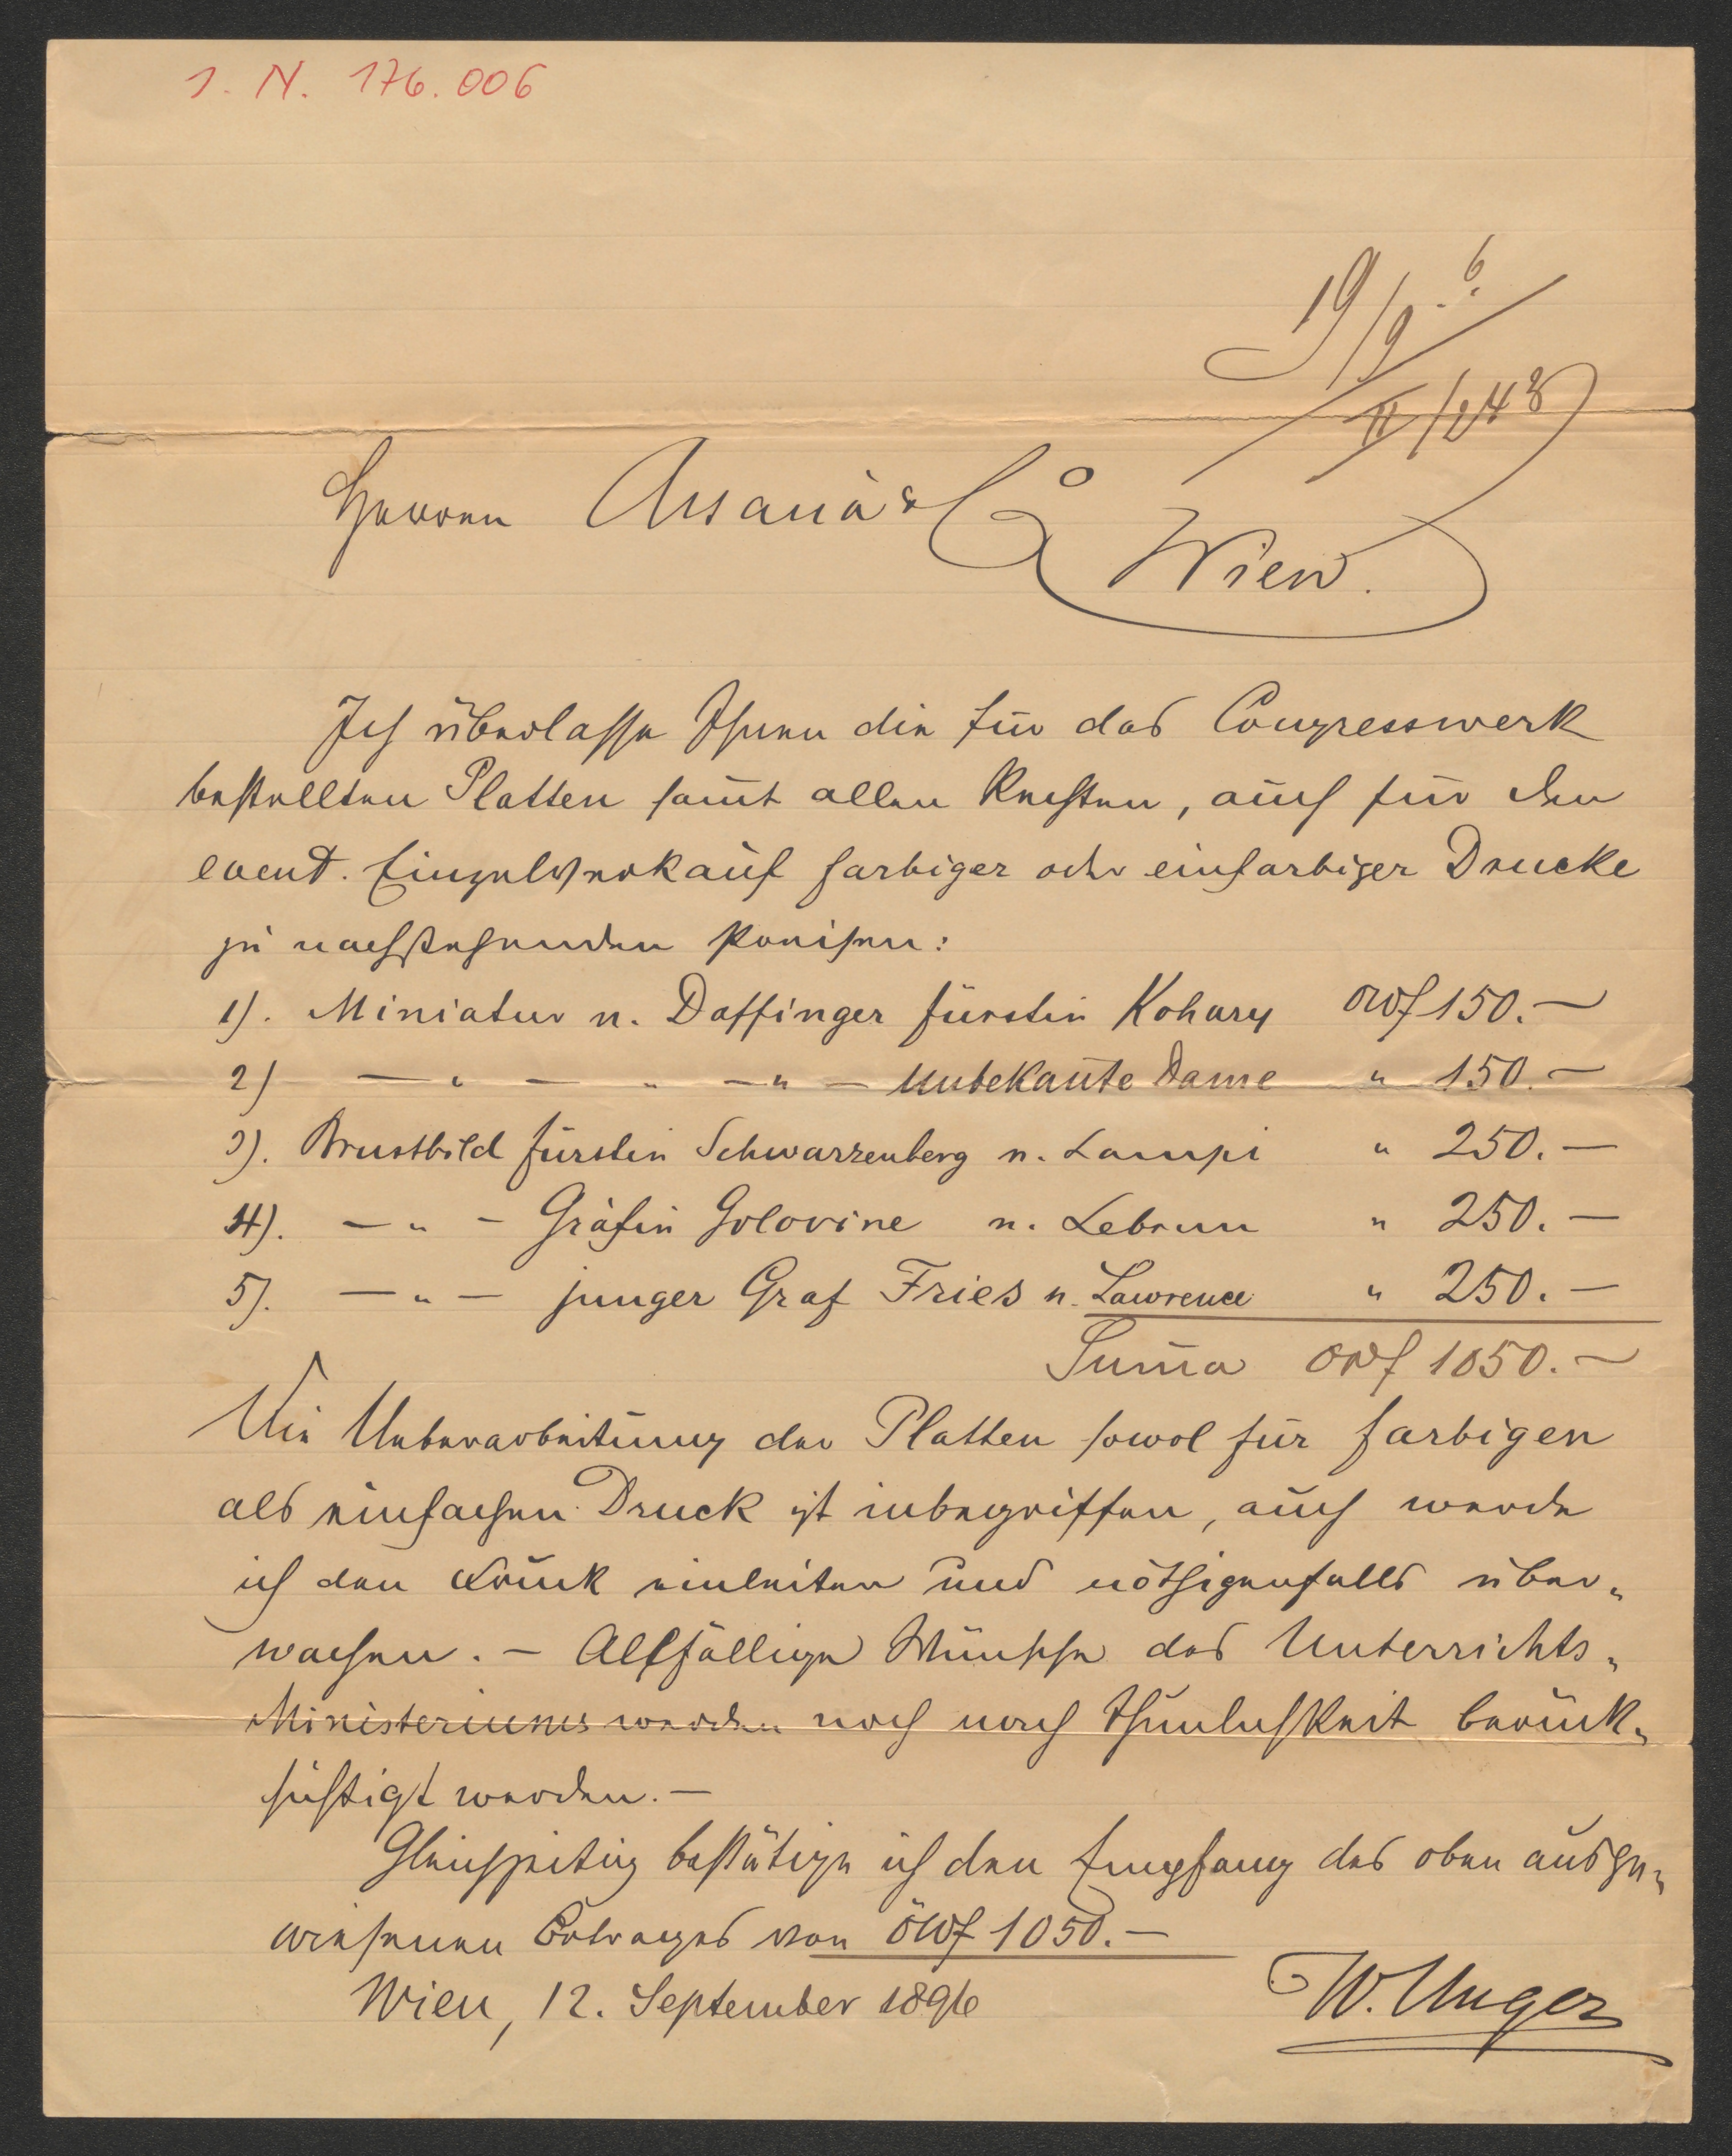 I. N. 176.006
19/9. 6.
II/248
Herren Artaria & Co
Wien.
Ich überlasse Ihnen die für das Congresswerk
bestellten Platten sam̄t allen Rechten, auch für den
event. Einzelverkauf farbiger oder einfarbiger Drucke
zu nachstehenden Preisen:
1). Miniatur n. Daffinger Fürstin Kohary öWf 150.—
2) — " — " — " — Unbekan̄te Dame " 150.—
3). Brustbild Fürstin Schwarzenberg n. Lampi " 250.—
4). — " — Gräfin Golovine n. Lebrun " 250.—
5). — " — junger Graf Fries n. Lawrence " 250.—
Sum̄a öWf 1050.—
Die Ueberarbeitung der Platten sowol für farbigen
als einfachen Druck ist inbegriffen, auch werde
ich den Druck einleiten und nöthigenfalls über-
wachen. — Allfällige Wünsche des Unterrichts-
Ministeriums werden noch nach Thunlichkeit berück-
sichtigt werden. —
Gleichzeitig bestätige ich den Empfang des oben ausge-
wiesenen Betrages von öWf 1050.—
Wien, 12. September 1896
W. Unger